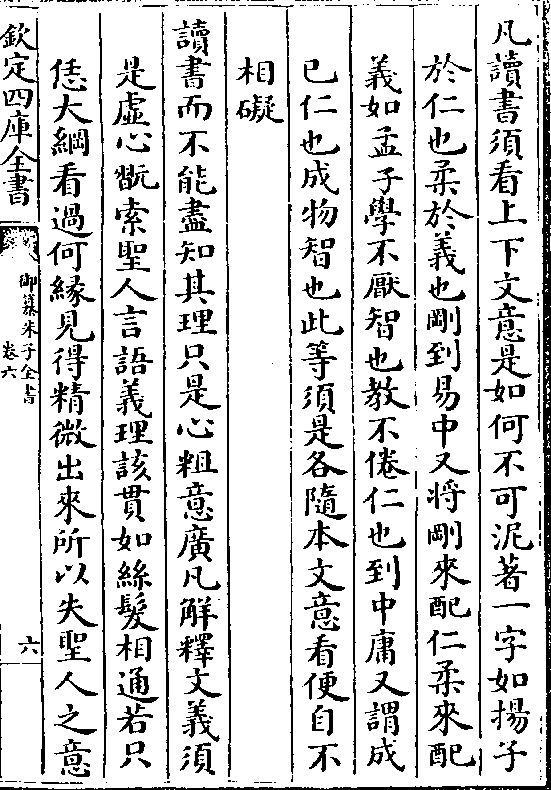 凡讀書須看上下文意是如何不可泥著一字如揚子
於仁也柔於義也剛到易中又將剛來配仁柔來配
義如孟子學不厭智也教不倦仁也到中庸又謂成
已仁也成物智也此等須是各隨本文意看便自不
相礙
讀書而不能盡知其理只是心粗意廣凡解釋文義須
是虛心翫索聖人言語義理該貫如絲髮相通若只
恁大綱看過何緣見得精微出來所以失聖人之意
欽定四庫全書
御纂朱子全書
卷六
六